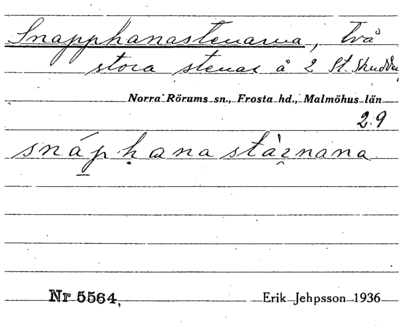 Snapphanastenarna, två
stora stenar å 2 St. Skudden
Norra Rörums sn., Frosta hd., Malmöhus län
2.9
snáphanastàrnana
Nr 5564, Erik Jehpsson 1936